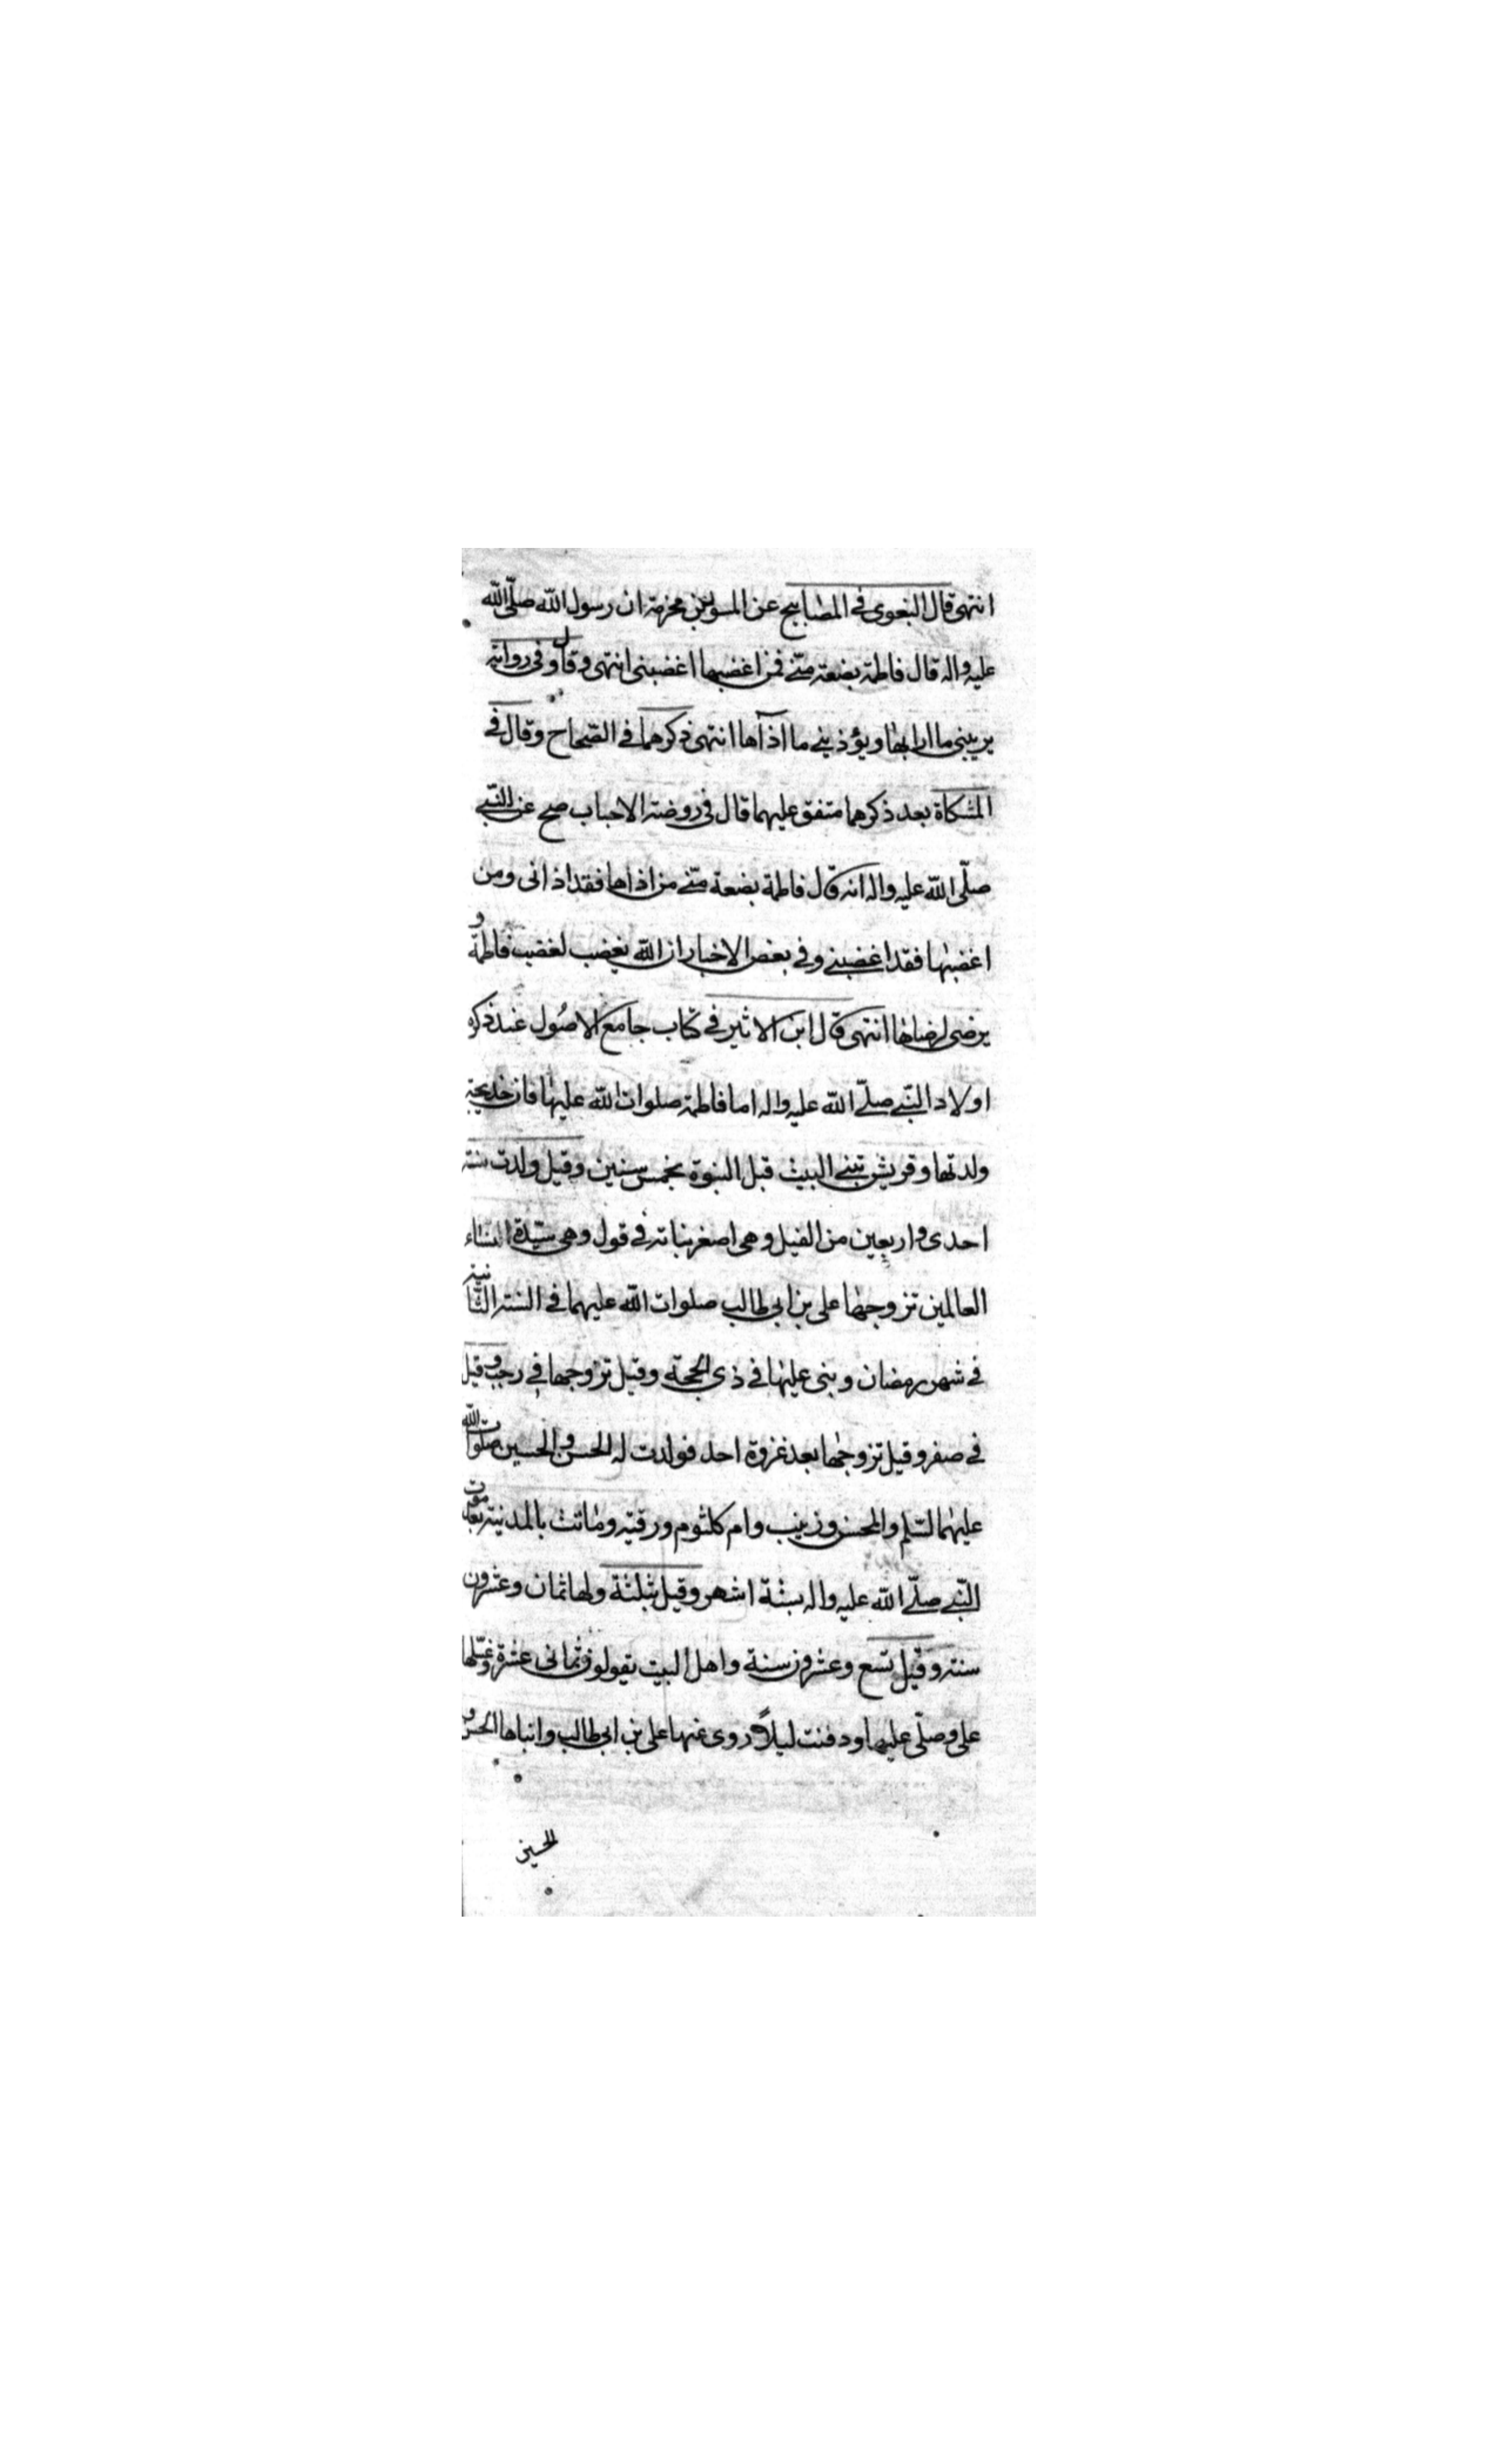 انتهى قال البغوى في المصابيح عن المسور بن مخرمة ان رسول الله صلّى الله
عليه واله قال فاطمة بضعة منّي فمن اغضبها اغضبنى انتهى وقال وفى رواية
يريبنى ما ارابها ويؤذيني ما اذاها انتهى ذكرهما في الصّحاح وقال في
المشكاة بعد ذكرهما متفق عليهما قال فى روضة الاحباب صح عن النّبي
صلّى الله عليه واله انه قال فاطمة بضعة منّي من اذاها فقد اذانى ومن
اغضبها فقد اغضبني وفي بعض الاخبار ان الله يغضب لغضب فاطمة و
يرضى لرضاها انتهى قال ابن الاثير في كتاب جامع الاصُول عند ذكره
اولاد النّبي صلّى الله عليه واله اما فاطمة صلوات الله عليها فان خديجة
ولدتها وقريش تبني البيت قبل النبوة بخمس سنين وقيل ولدت سنة
احدى واربعين من الفيل وهى اصغر بناته في قول وهى سيّدة النساء
العالمين تزوجها على بن ابى طالب صلوات الله عليهما في السنة الثانية
في شهر رمضان وبنى عليها في ذى الحجة وقيل تزوجها في رجب وقيل
في صفر وقيل تزوجها بعد غزوة احد فولدت له الحسن والحسين صلوات الله
عليهما السّلم والمحسن وزينب وام كلثوم ورقيّه وماتت بالمدينة بعد موت
النّبي صلّى الله عليه واله بستة اشهر وقيل بثلثة ولها ثمان وعشرون
سنة وقيل تسع وعشرون سنة واهل البيت يقولون ثمانى عشرة وغسّلها
على وصلّى عليها ودفنت ليلاً روى عنها على بن ابى طالب وابناها الحسن و
الحسين